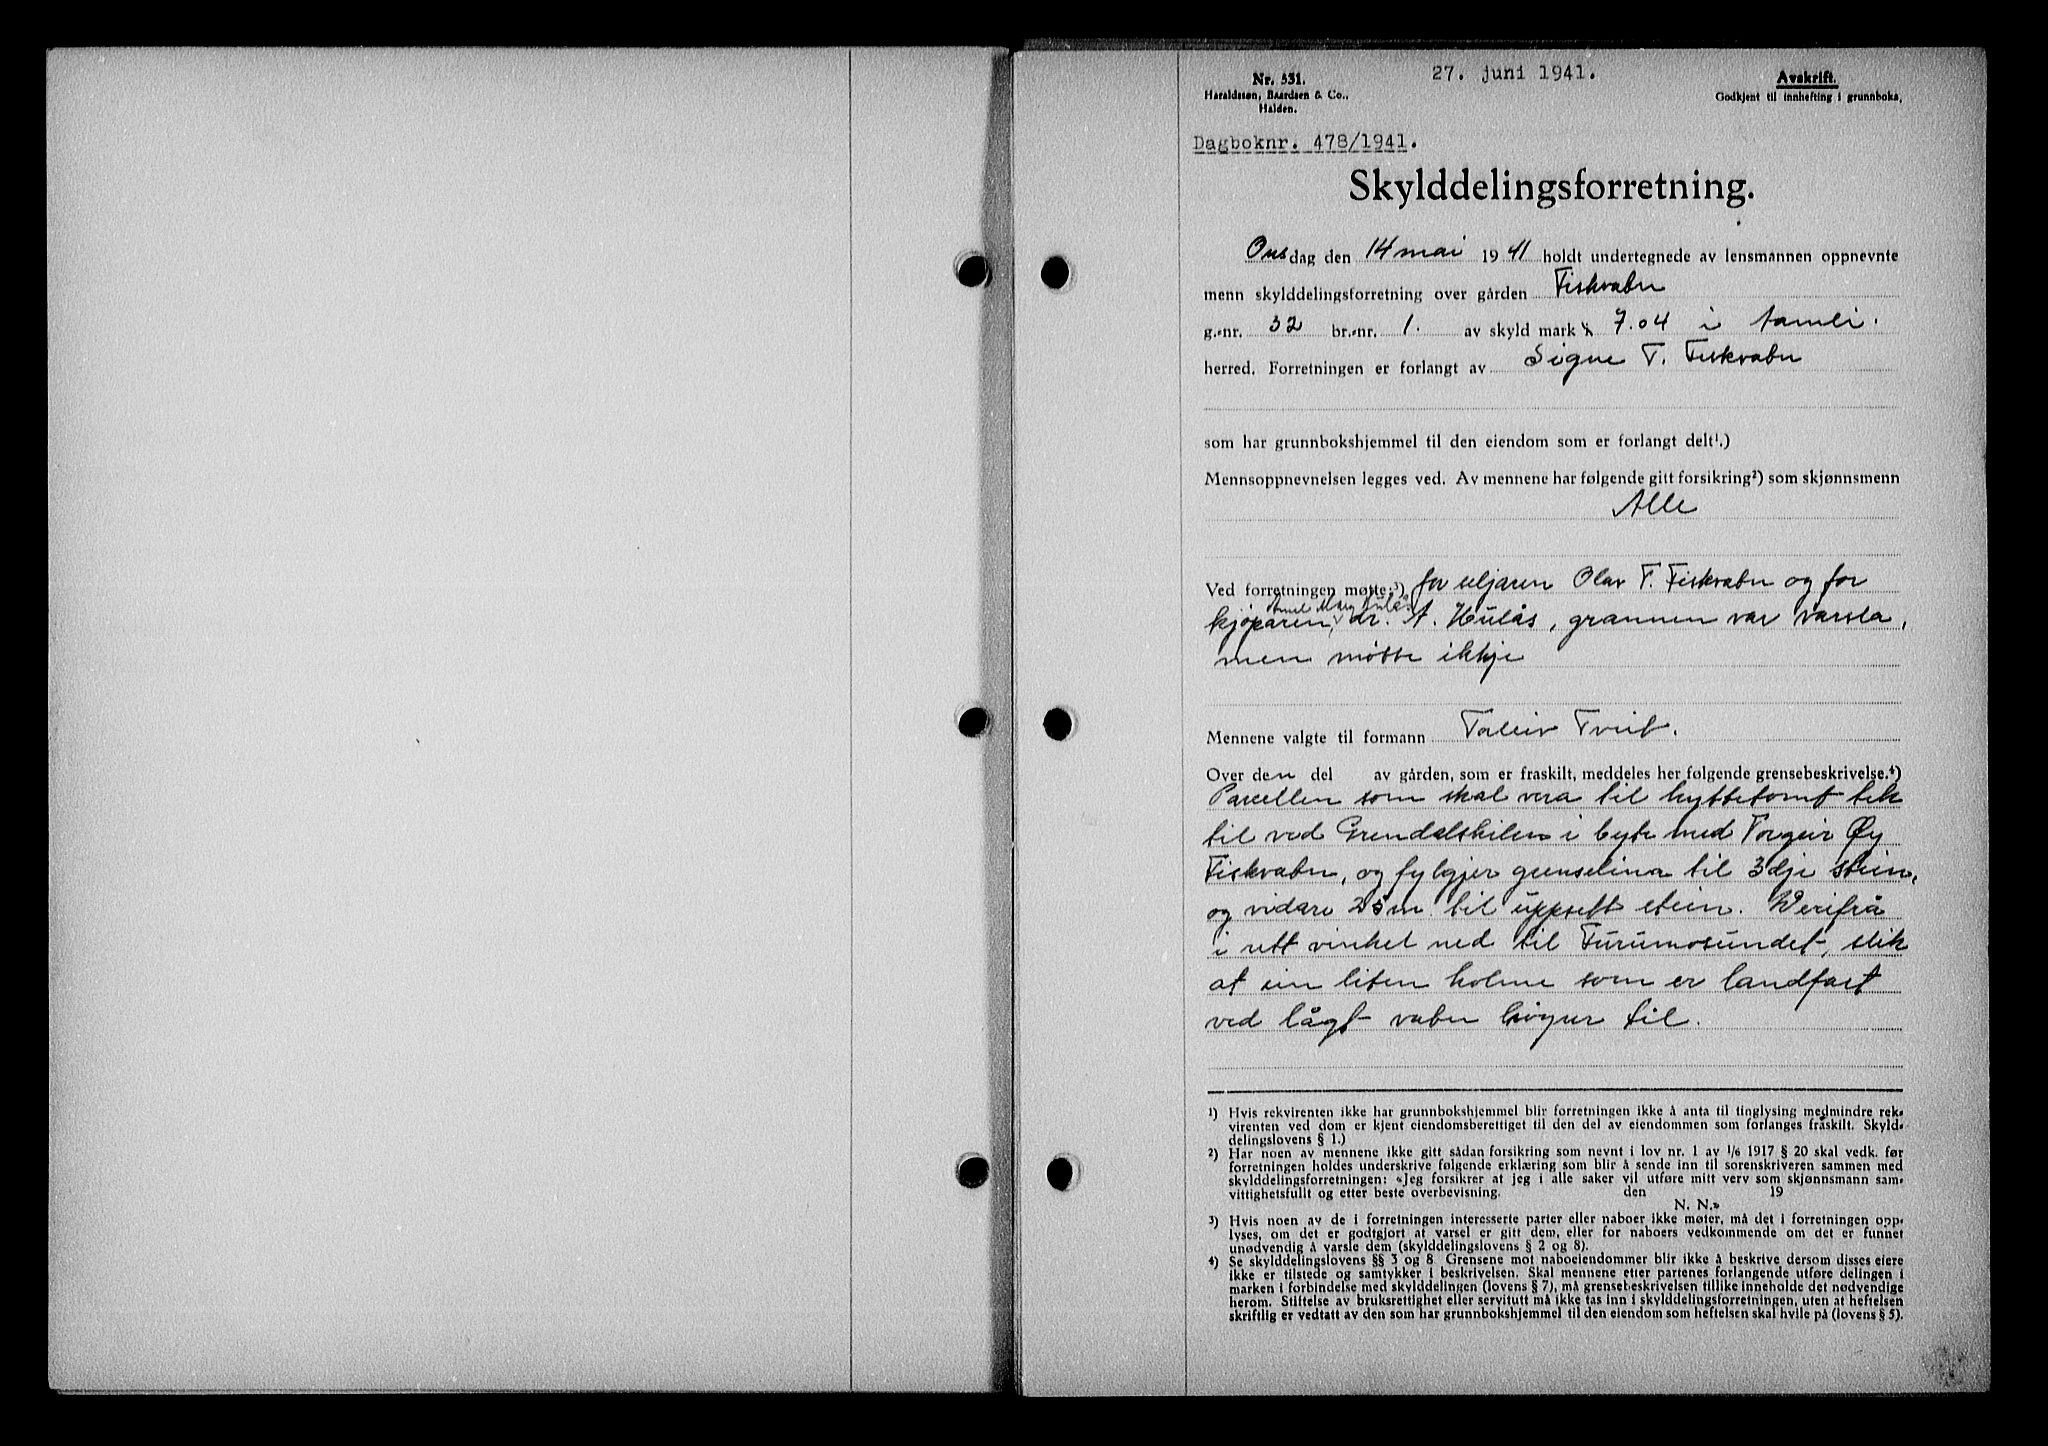 Nr. 531.
Haraldssøn, Baardsen & Co.,
Halden.
27. juni 1941.
Avskrift.
Godkjent til innhefting i grunnboka,
Dagboknr. 478/1941.
Skylddelingsforretning.
Onsdag den 14 mai 1941 holdt undertegnede av lensmannen oppnevnte
menn skylddelingsforretning over gården Fiskvatn
g.-nr. 32 br.-nr. 1. av skyld mark 7.04 i Åmli.
herred. Forretningen er forlangt av Signe T. Fiskvatn
som har grunnbokshjemmel til den eiendom som er forlangt delt¹.)
Mennsoppnevnelsen legges ved. Av mennene har følgende gitt forsikring²) som skjønnsmenn
Alle
Ved forretningen møtte:³) for seljaren Olav T. Fiskvatn og for
kjøparen, dr. A. Hulås, grannen var varsla,
men møtte ikkje
Mennene valgte til formann Taleiv Tveit.
Over den del av gården, som er fraskilt, meddeles her følgende grensebeskrivelse.⁴)
Parcellen som skal vera til hyttetomt tek
til ved Grendalskilen i byte med Torgeir Øy
Fiskvatn, og fylgjer grenselina til 3dje stein,
og vidare 25 m til uppsett stein. Derifrå
i rett vinkel ned til Furumosundet, slik
at ein liten holme som er landfast
ved lågt vatn høyrer til.
¹) Hvis rekvirenten ikke har grunnbokshjemmel blir forretningen ikke å anta til tinglysing medmindre rek-
virenten ved dom er kjent eiendomsberettiget til den del av eiendommen som forlanges fråskilt. Skyld-
delingslovens § 1.)
²) Har noen av mennene ikke gitt sådan forsikring som nevnt i lov nr. 1 av 1/6 1917 § 20 skal vedk. før
forretningen holdes underskrive følgende erklæring som blir å sende inn til sorenskriveren sammen med
skylddelingsforretningen: «Jeg forsikrer at jeg i alle saker vil utføre mitt verv som skjønnsmann sam-
vittighetsfullt og etter beste overbevisning. den 19
N. N.»
³) Hvis noen av de i forretningen interesserte parter eller naboer ikke møter, må det i forretningen opp-
lyses, om det er godtgjort at varsel er gitt dem, eller for naboers vedkommende om det er funnet
unødvendig å varsle dem (skylddelingslovens § 2 og 8).
⁴) Se skylddelingslovens §§ 3 og 8. Grensene mot naboeiendommer blir ikke å beskrive dersom disses eiere
ikke er tilstede og samtykker i beskrivelsen. Skal mennene etter partenes forlangende utføre delingen i
marken i forbindelse med skylddelingen (lovens § 7), må grensebeskrivelsen tillike inneholde det nødvendige
herom. Stiftelse av bruksrettighet eller servitutt må ikke tas inn i skylddelingsforretningen, uten at heftelsen
skriftlig er vedtatt av den som har grunnbokshjemmel til den eiendom som heftelsen skal hvile på (lovens § 5).